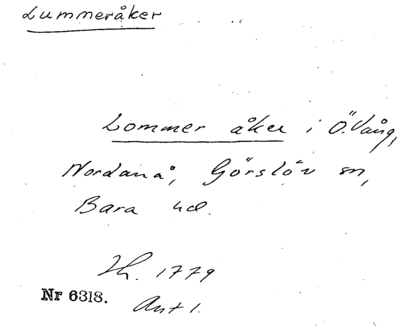 Lummeråker
Lommer åker i Ö. Vång,
Nordanå, Görslöv sn,
Bara hd.
Lh. 1779
Nr 6318.
Akt 1.